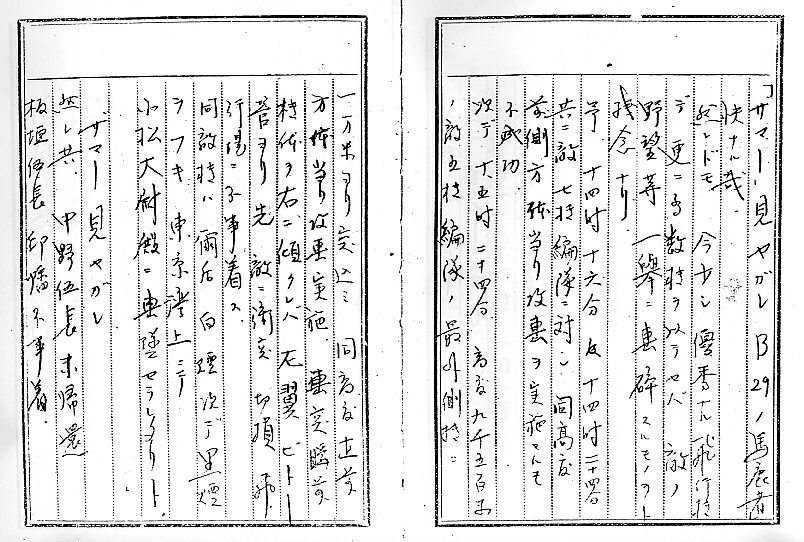 「ザマー見ヤガレ B29ノ馬鹿者
快ナル哉
然レドモ 今少シ優秀ナル飛行機
デ 更ニ多数機ヲ以テセバ 敵ノ
野望等 一挙ニ粉砕スルモノヲト
残念ナリ
予 十四時十六分及十四時二十四分
共ニ敵七機編隊ニ対シ 同高度
前側方体当り攻撃ヲ実施スルモ
不成功
次デ 十五時二十四分 高度九千五百米
ノ敵五機編隊ノ最外側機ニ
一万米ヨリ突込ミ 同高度直前
方体当り攻撃実施 衝突瞬前
機体ヲ右ニ傾クレバ 左翼ピトー
管ヨリ先 敵ニ衝突 切損 飛
行場ニ不時着ス
同敵機ハ爾后白煙次デ黒煙
ヲフキ 東京湾上ニテ
小松大尉殿ニ撃墜セラレタリト
ザマー見ヤガレ
然レ共 中野伍長未帰還
板垣伍長 印旛不時着